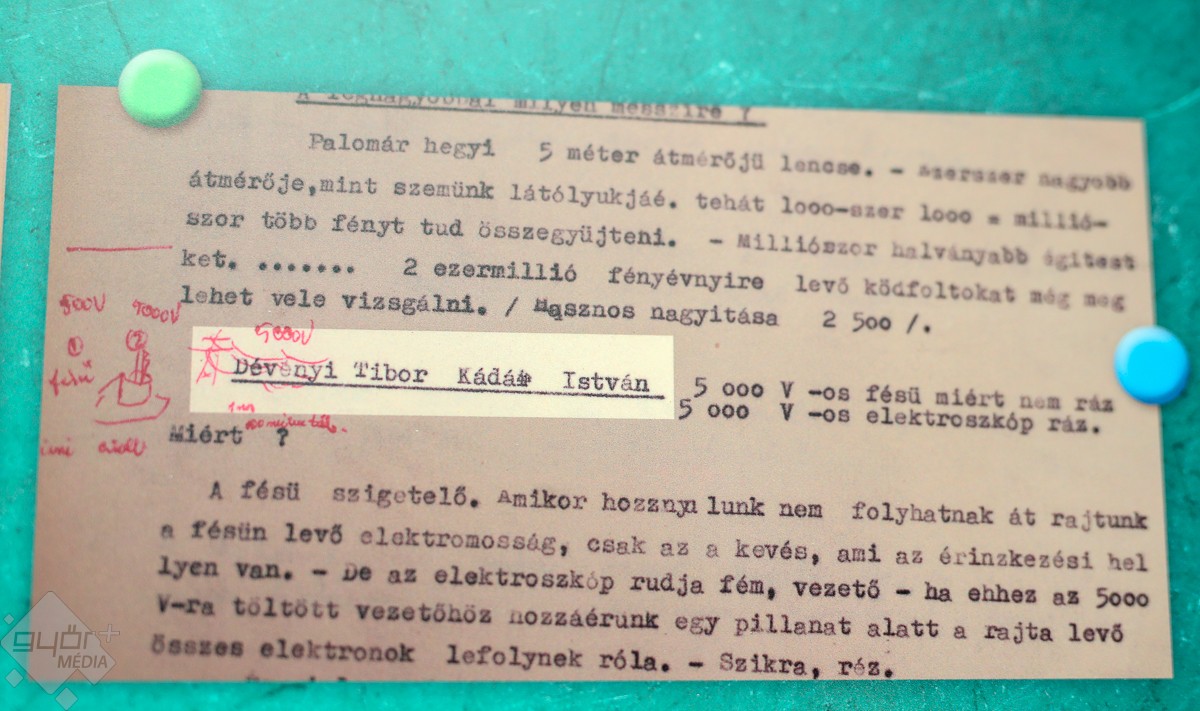 A legnagyobbal milyen messzire ?
Palomár hegyi 5 méter átmérőjü lencse. - Ezerszer nagyobb
átmérője,mint szemünk látólyukjáé. tehát looo-szer looo = millió-
szor több fényt tud összegyüjteni. - Milliószor halványabb égitest
ket. ....... 2 ezermillió fényévnyire levő ködfoltokat még meg
lehet vele vizsgálni. / Hasznos nagyitása 2 5oo /.
500V 5000V
5000V
① ②
fésű
Dévényi Tibor Kádár István
5 ooo V -os fésü miért nem ráz
5 ooo V -os elektroszkóp ráz.
Miért ?
A fésü szigetelő. Amikor hozznyu lunk nem folyhatnak át rajtunk
a fésün levő elektromosság, csak az a kevés, ami az érinzkezési hel
lyen van. - De az elektroszkóp rudja fém, vezető - ha ehhez az 5ooo
V-ra töltött vezetőhöz hozzáérunk egy pillanat alatt a rajta levő
összes elektronok lefolynek róla. - Szikra, réz.
győr+
MÉDIA